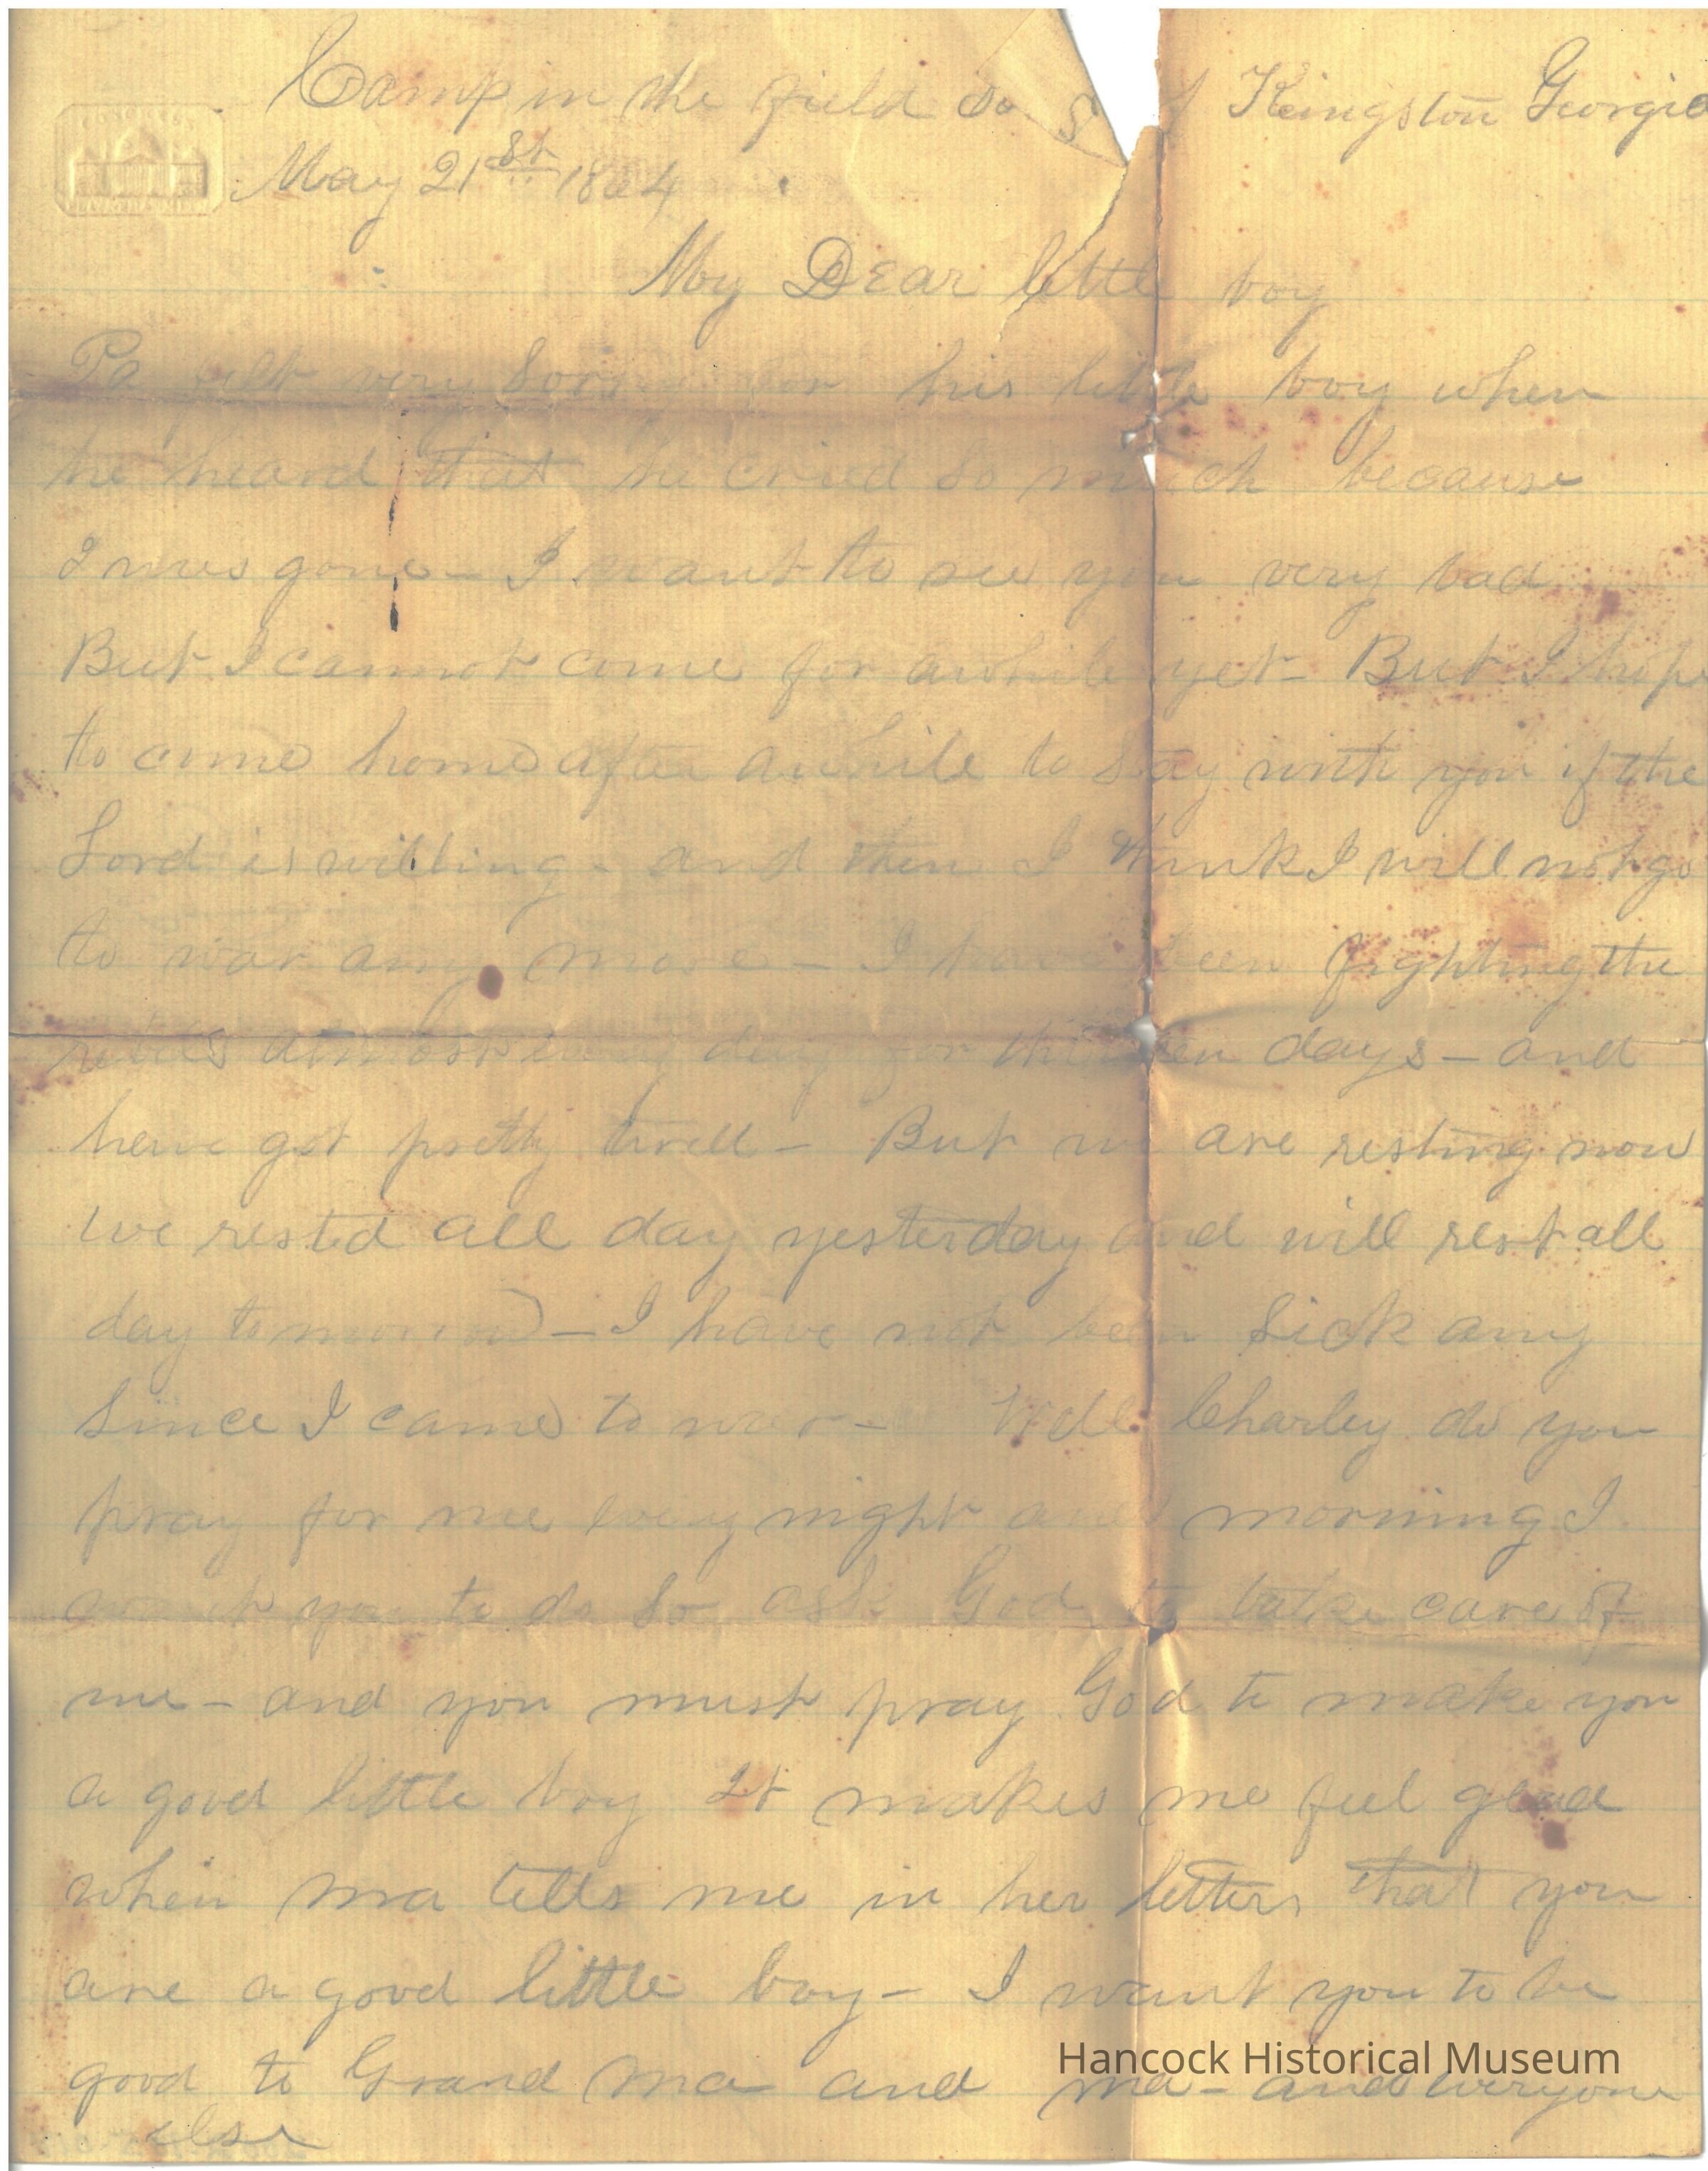 Camp in the field So S Kingston Georgia
CONGRESS
May 21st 1864
My Dear little boy
Pa felt very Sorry for his little boy when
he heard that he cried So much because
I was gone - I want to see you very bad
But I cannot come for awhile yet - But I hope
to come home after awhile to Stay with you if the
Lord is willing - and then I think I will not go
to war any more - I have been fighting the
rebs almost every day for thirteen days - and
have got pretty tired - But we are resting now
we rested all day yesterday and will rest all
day tomorrow - I have not been Sick any
Since I came to war - Well Charley do you
pray for me every night and morning I
want you to do So ask God to take care of
me - and you must pray God to make you
a good little boy It makes me feel glad
when ma tells me in her letters that you
are a good little boy - I want you to be
good to Grand Ma and ma - and everyone
else
Hancock Historical Museum